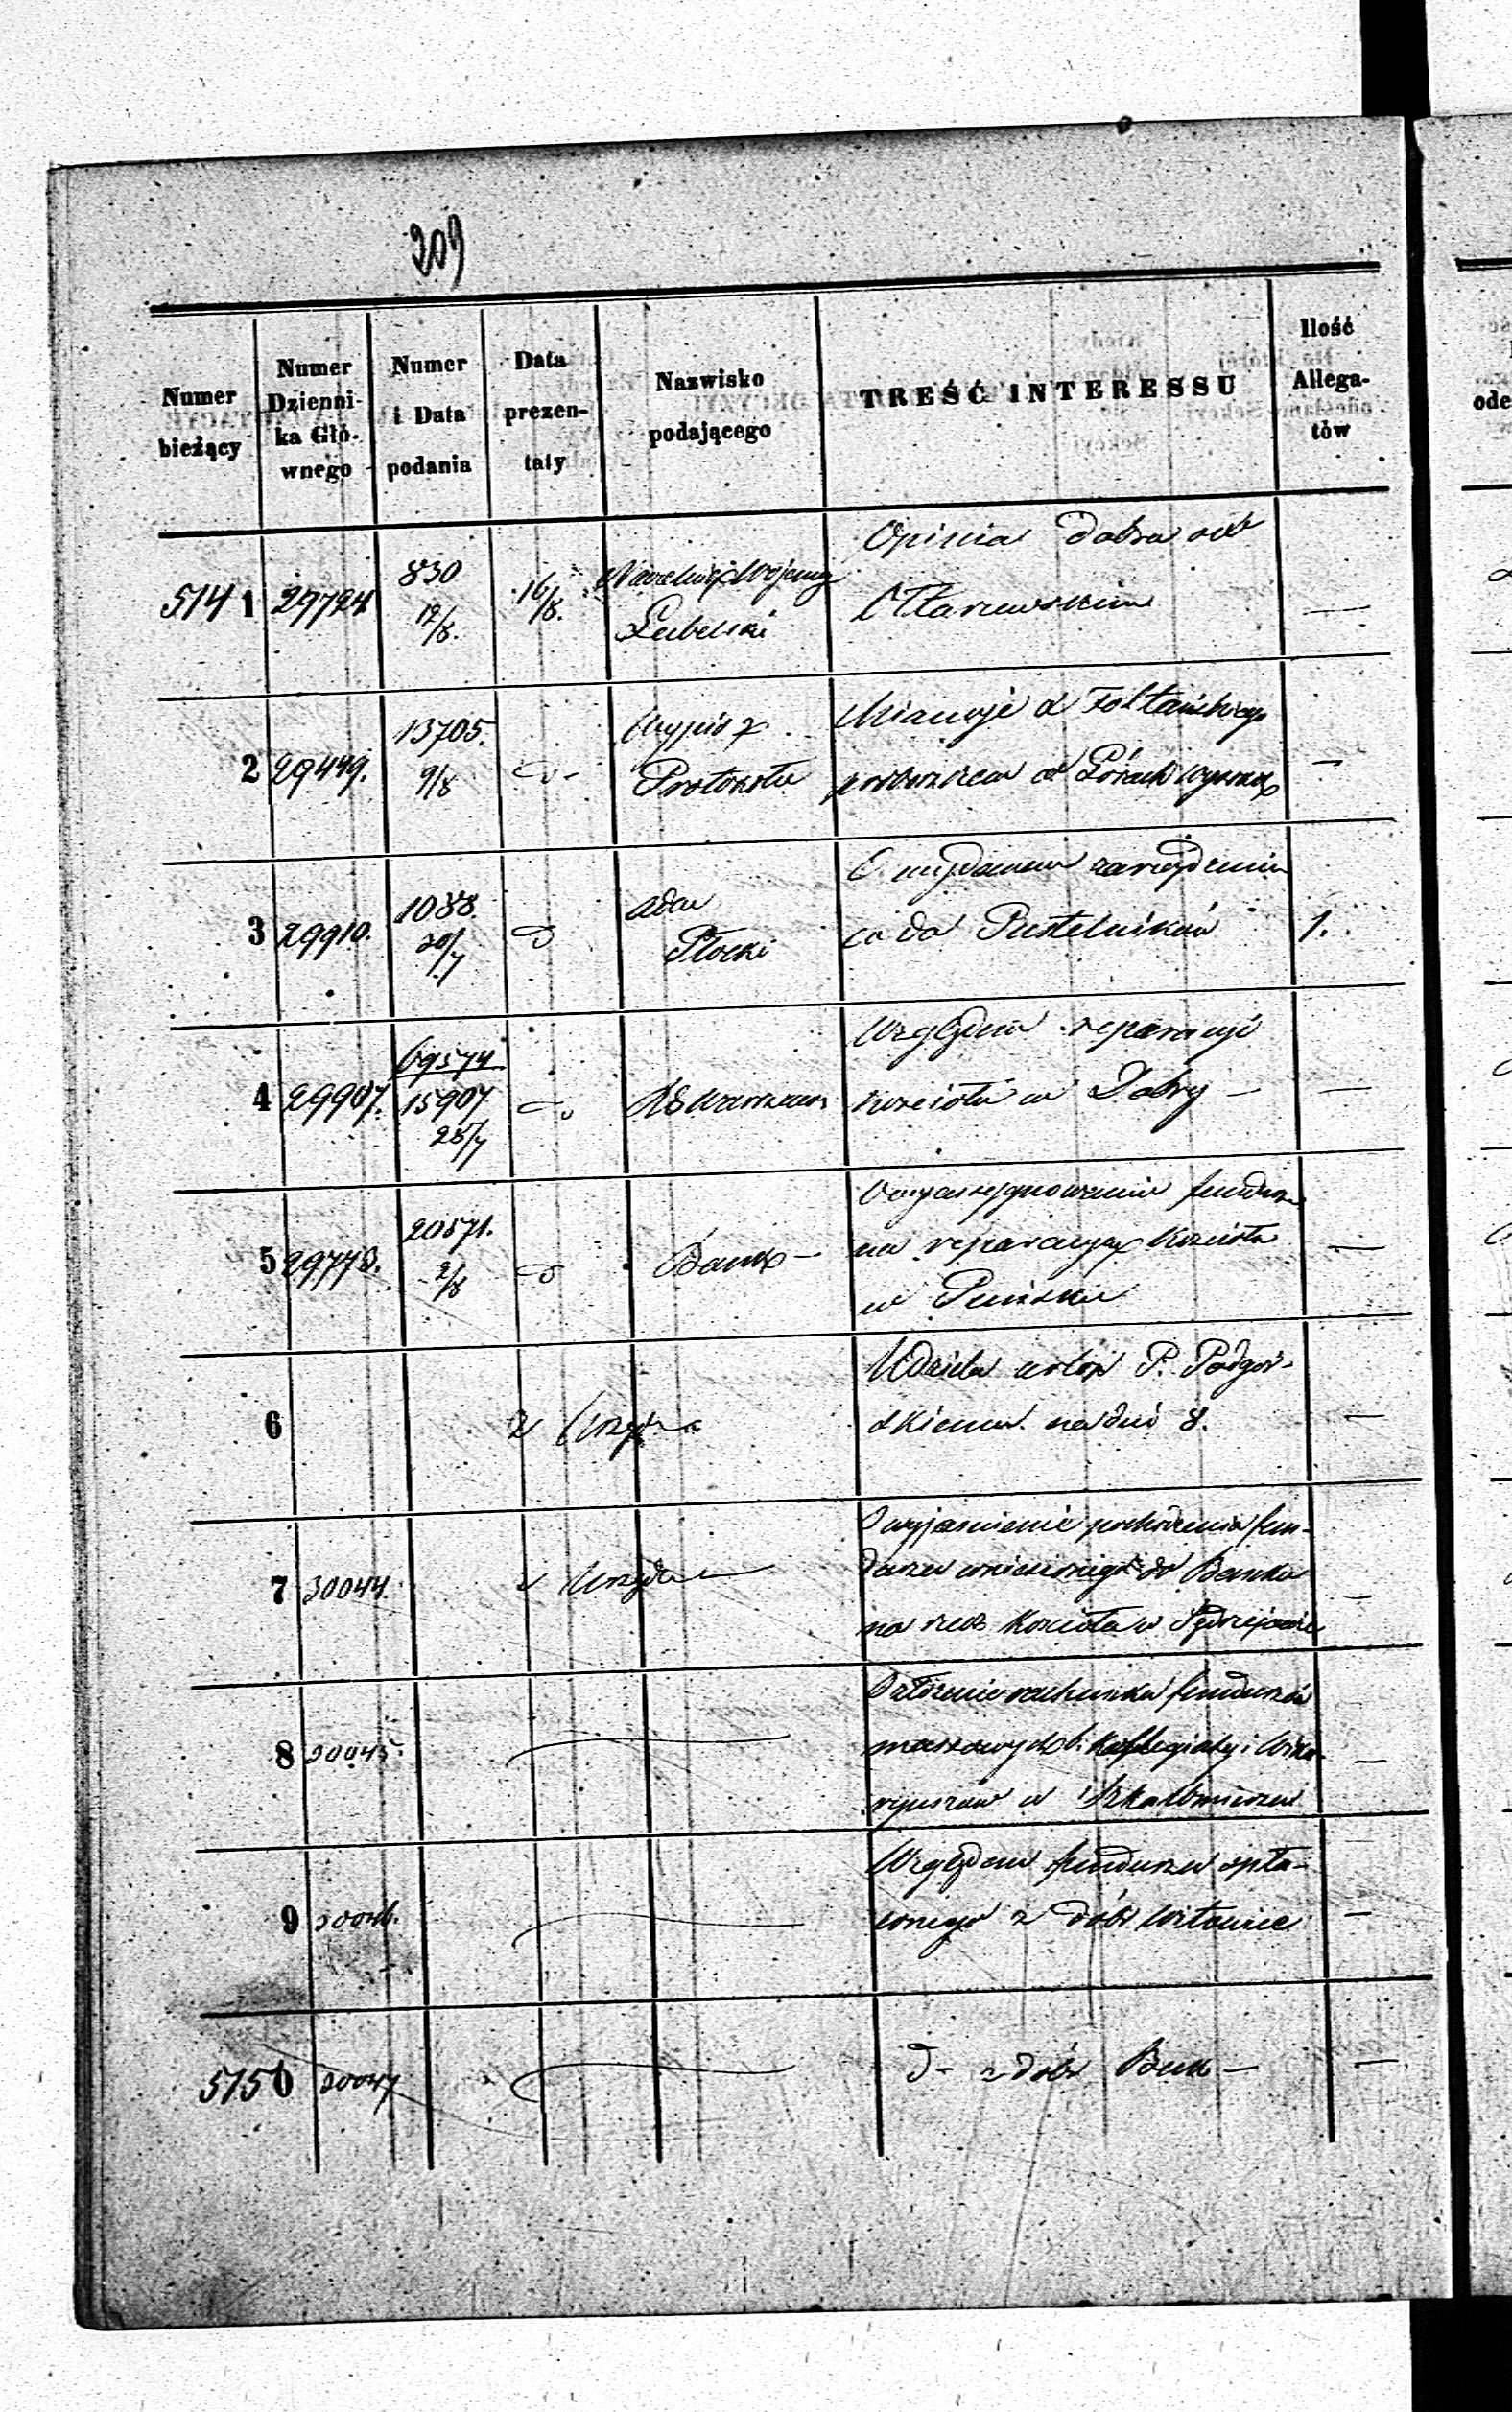 209
Numer bieżący
Numer Dzienni-ka Głó-wnego
Numer i Data podania
Data prezen-taty
Nazwisko podającego
TREŚĆ INTERESSU
Ilość Allega-tów
5141 29724 830 12/8. 16/8. Naczelnik Wojenny Lubelski
Opinia dobra
—
2 29449. 13705. 9/8 d- Wypis z Protokołu
Mianuje
proboszczem w Górach
—
3 29910. 1088. 20/7 d Płocki
O wydanem zarządzeniu
co do Pustelników
1.
4 29907. 69574 15907 25/7 d Warszaws
Względem reparacyi
kościoła w Dobry —
—
5 29773. 20571. 2/8 d Bank —
Wyassygnowanie fundusz
na reparacyą kościoła
w Puńsku
—
6 z Urzędu
Udziela urlop P. Podgór-
skiemu na dni 8.
—
7 30044. z Urzędu
O wyjaśnienie pochodzenia fun-
duszu wniesionego do Banku
na rzecz kościoła w Jędrzejowie
—
8 30045.
O złożenie rachunku funduszów
massowych b. Kollegiaty i Wika-
ryuszów w Skalbmierzu
—
9 30046.
Względem funduszu spła-
conego z dóbr Witowice
—
5150 30047
d- z dóbr Buk —
—